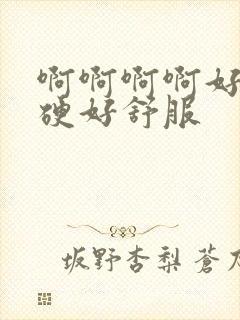 啊啊啊啊好
硬好舒服
坂野杏梨 苍